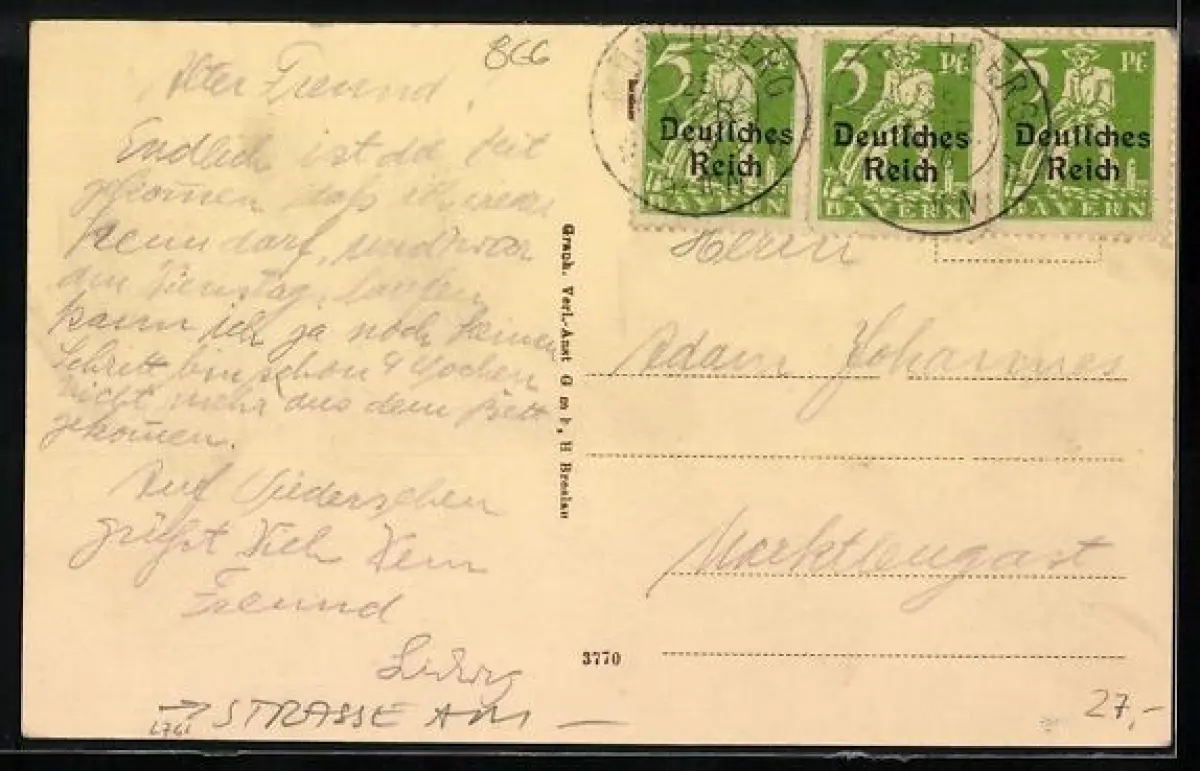 866
Alter Freund!
Endlich ist die Zeit
gekommen daß ich wieder
heim darf, und zwar
am Dienstag, laufen
kann ich ja noch keinen
Schritt bin schon 9 Wochen
nicht mehr aus dem Bett
gekommen.
Auf Wiedersehen
grüßt Dich Dein
Freund
Ludwig
→ STRASSE AM —
Graph. Verl.-Anst G m b, H Breslau
3770
5 Pf
Deutsches
Reich
BAYERN
5 Pf
Deutsches
Reich
BAYERN
5 Pf
Deutsches
Reich
BAYERN
Herrn
Adam Johannes
Marktleugast
27,-